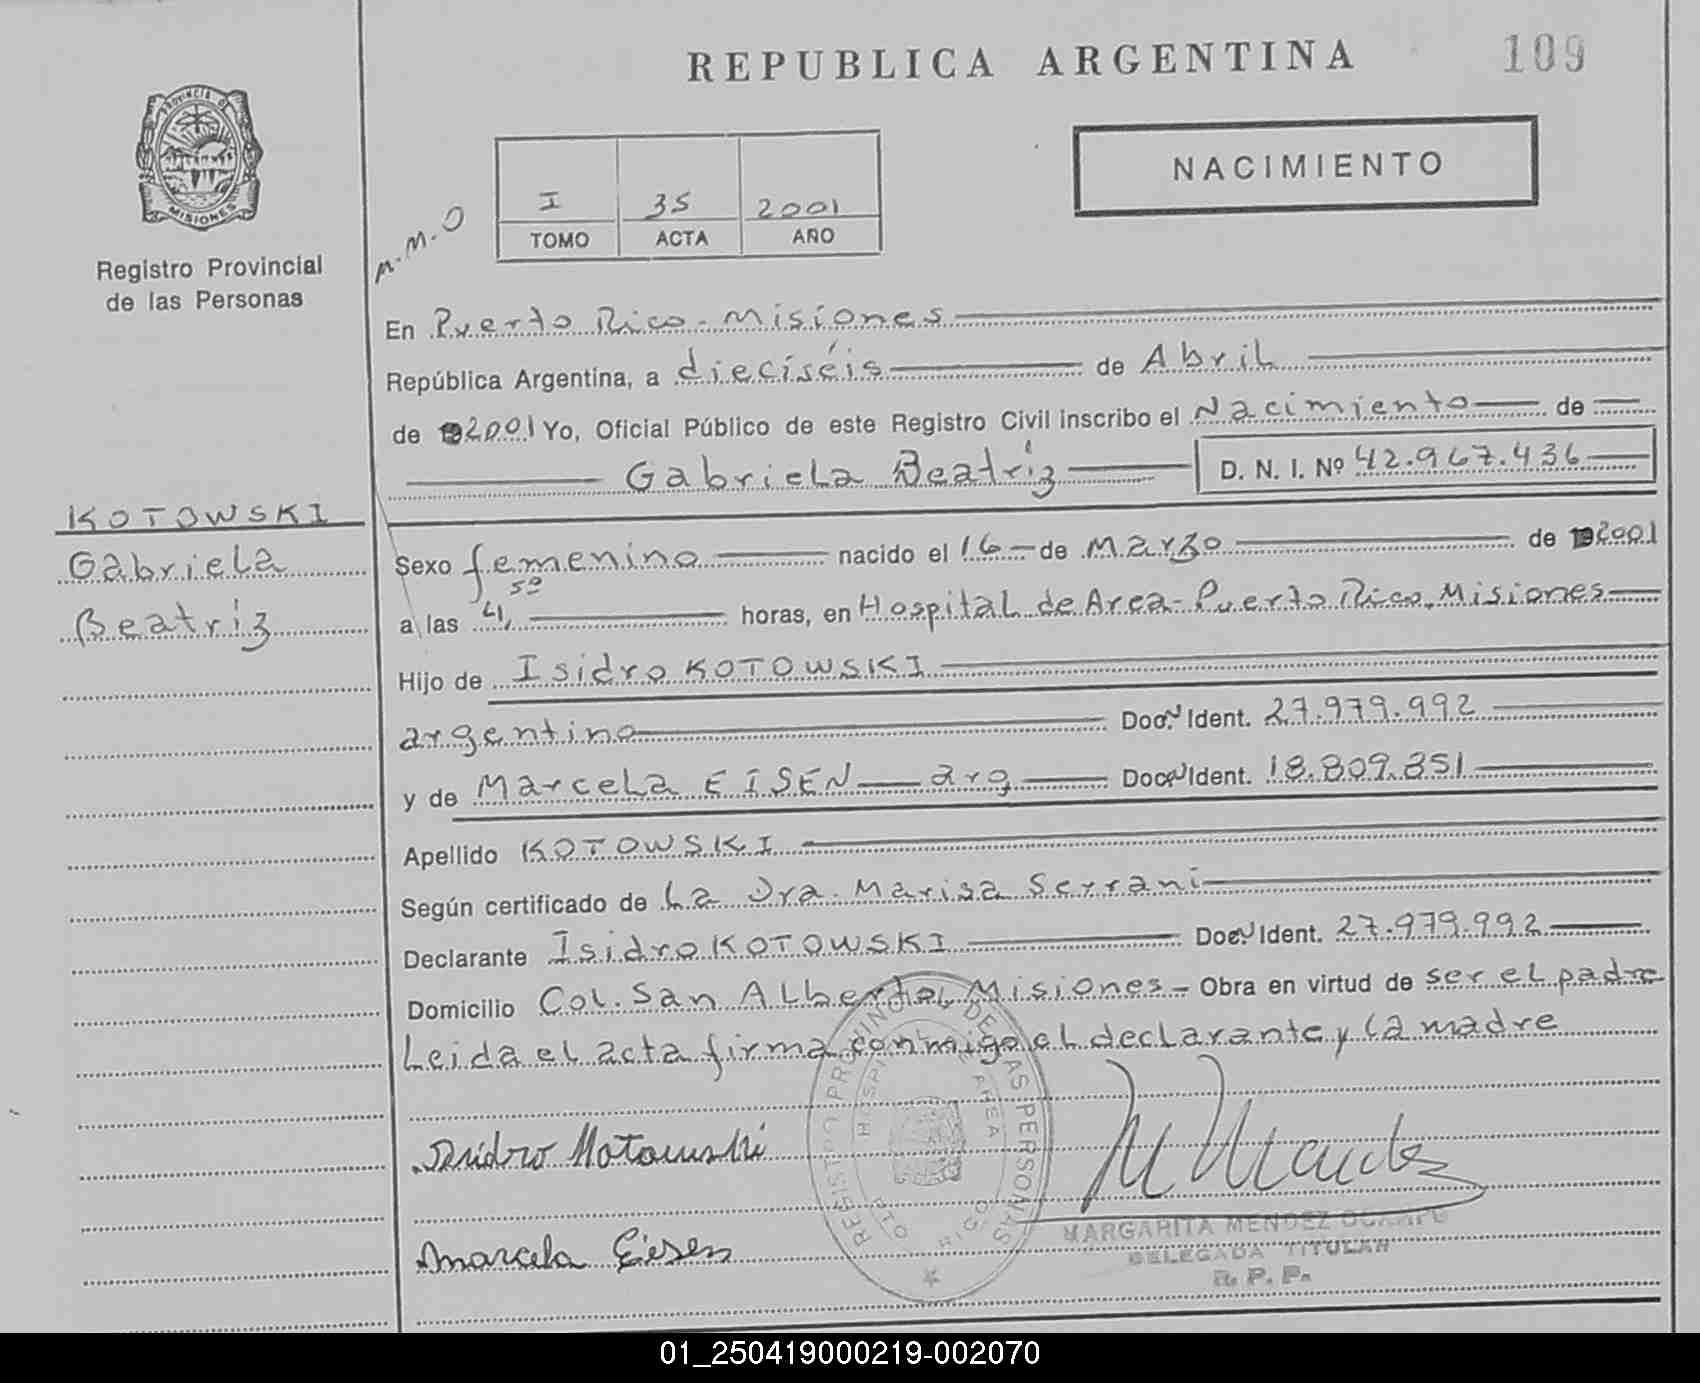 REPUBLICA ARGENTINA
109
PROVINCIA DE
MISIONES
Registro Provincial
de las Personas
M.M.O
I 35 2001
TOMO ACTA AÑO
NACIMIENTO
En Puerto Rico - Misiones
República Argentina, a dieciséis de Abril
de 2001 Yo, Oficial Público de este Registro Civil inscribo el Nacimiento de
Gabriela Beatríz D. N. I. Nº 42.967.436
KOTOWSKI
Gabriela
Beatríz
Sexo femenino nacido el 16 de Marzo de 2001
a las 4,50 horas, en Hospital de Area - Puerto Rico, Misiones
Hijo de Isidro KOTOWSKI
argentino Doc. Ident. 27.979.992
y de Marcela EISEN arg Doc. Ident. 18.809.851
Apellido KOTOWSKI
Según certificado de La Dra. Marisa Serrani
Declarante Isidro KOTOWSKI Doc. Ident. 27.979.992
Domicilio Col. San Alberto, Misiones - Obra en virtud de ser el padre
Leida el acta firma conmigo el declarante y la madre
Isidro Kotowski
REGISTRO PROVINCIAL DE LAS PERSONAS
HOSPITAL DE AREA
PTO RICO
Marcela Eisen
MARGARITA MENDEZ OCAMPO
DELEGADA TITULAR
R. P. P.
01_250419000219-002070